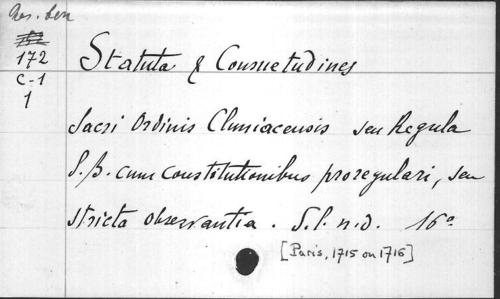 Res. ben
172
C-1
1
Statuta & Consuetudines
Sacri Ordinis Cluniacensis seu Regula
S. B. cum constitutionibus pro regulari, seu
stricta observantia. S. l. n. d. 16°
[Paris, 1715 ou 1716]